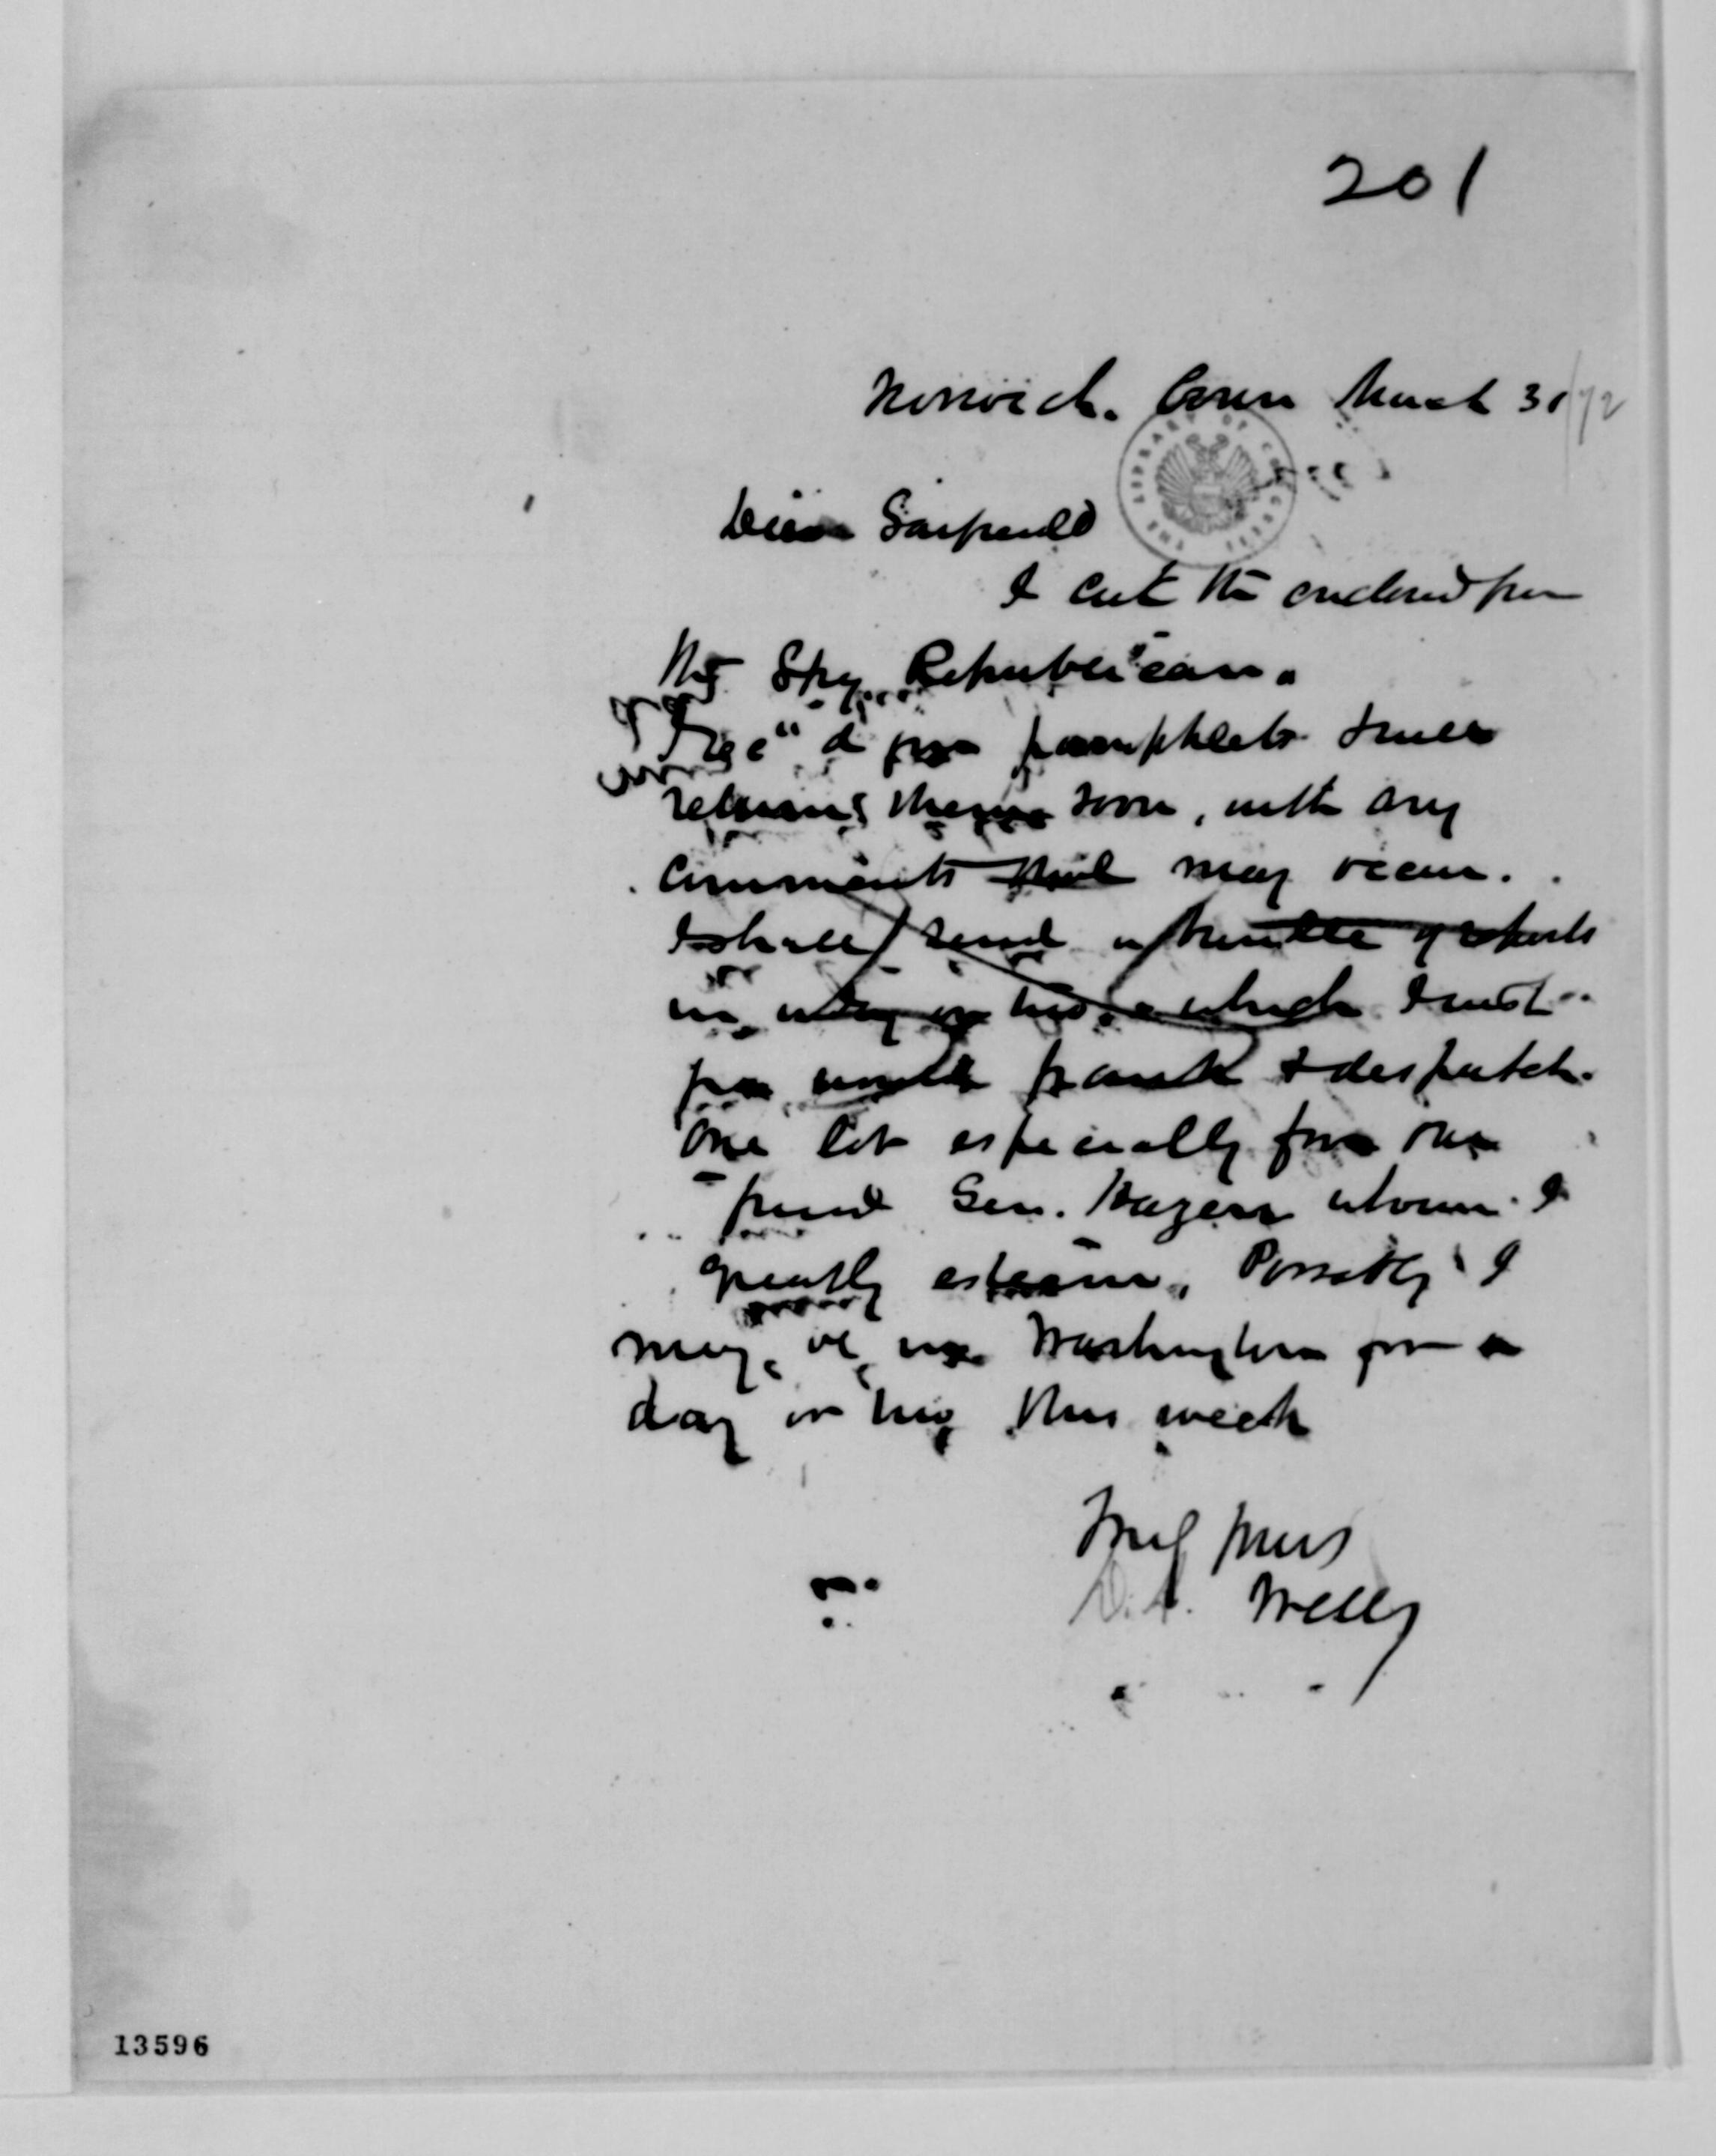 201
Norwich. Conn March 31/72
Dear Garfield
I cut the enclosed from
the Spg. Republican.
Rec'd your pamphlets & will
return them soon, with any
comments that may occur.
I shall send a bundle of reports
in a day or two, which I trust
you will frank & despatch.
One lot especially for our
friend Gen. Hazen whom I
greatly esteem. Possibly I
may be in Washington for a
day or two this week
Truly yours
D.A. Wells
THE LIBRARY OF CONGRESS
13596